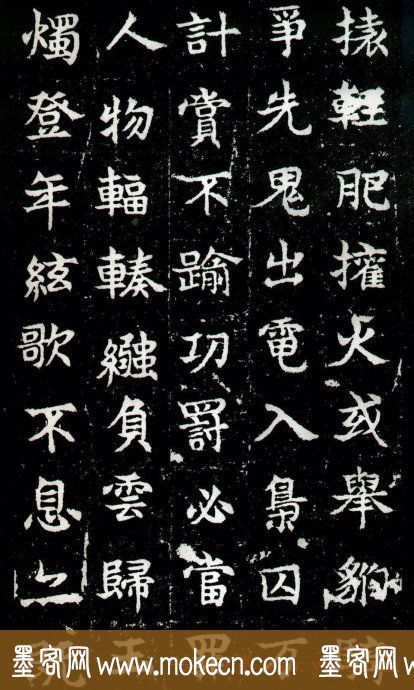 輕肥擁火或舉豹
爭先鬼出電入梟囚
計賞不踰功罰必當
人物輻輳繈負雲歸
燭登年絃歌不息
墨客网 www.mokecn.com 墨客网